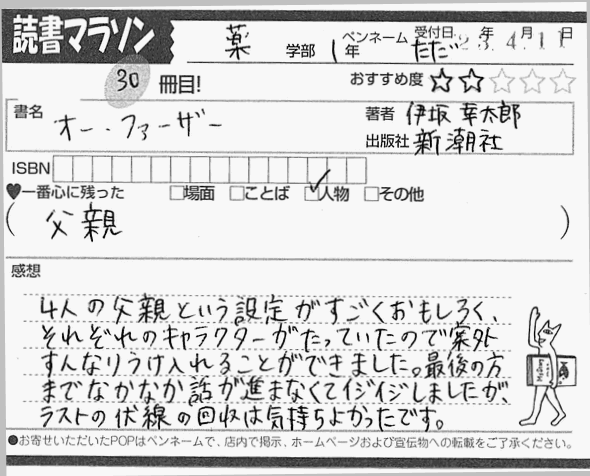 読書マラソン
薬 学部 1年 ペンネーム ただ 受付日 23年 4月 11日
30 冊目!
おすすめ度 ★★☆☆☆
書名 オー・ファーザー
著者 伊坂 幸太郎
出版社 新潮社
ISBN
♥一番心に残った □場面 □ことば ☑人物 □その他
(父親)
感想
4人の父親という設定がすごくおもしろく、
それぞれのキャラクターがたっていたので案外
すんなりうけ入れることができました。最後の方
までなかなか話が進まなくてイジイジしましたが、
ラストの伏線の回収は気持ちよかったです。
●お寄せいただいたPOPはペンネームで、店内で掲示、ホームページおよび宣伝物への転載をご了承ください。